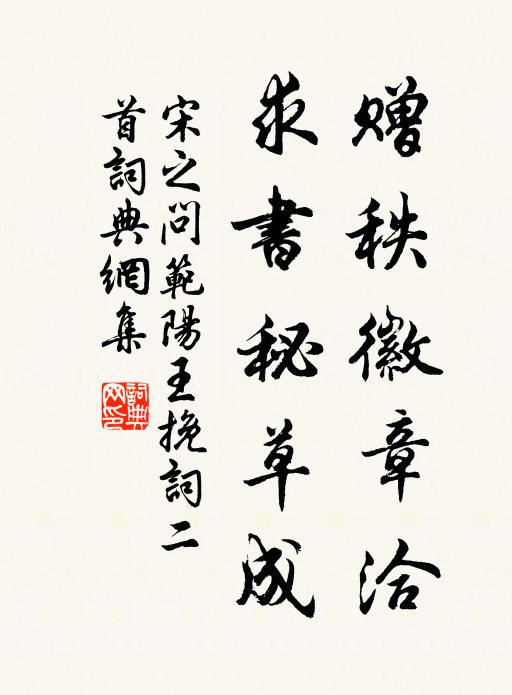 贈秩徽章洽
求書秘草成
宋之問範陽王挽詞二
首詞典網集
詞典網印